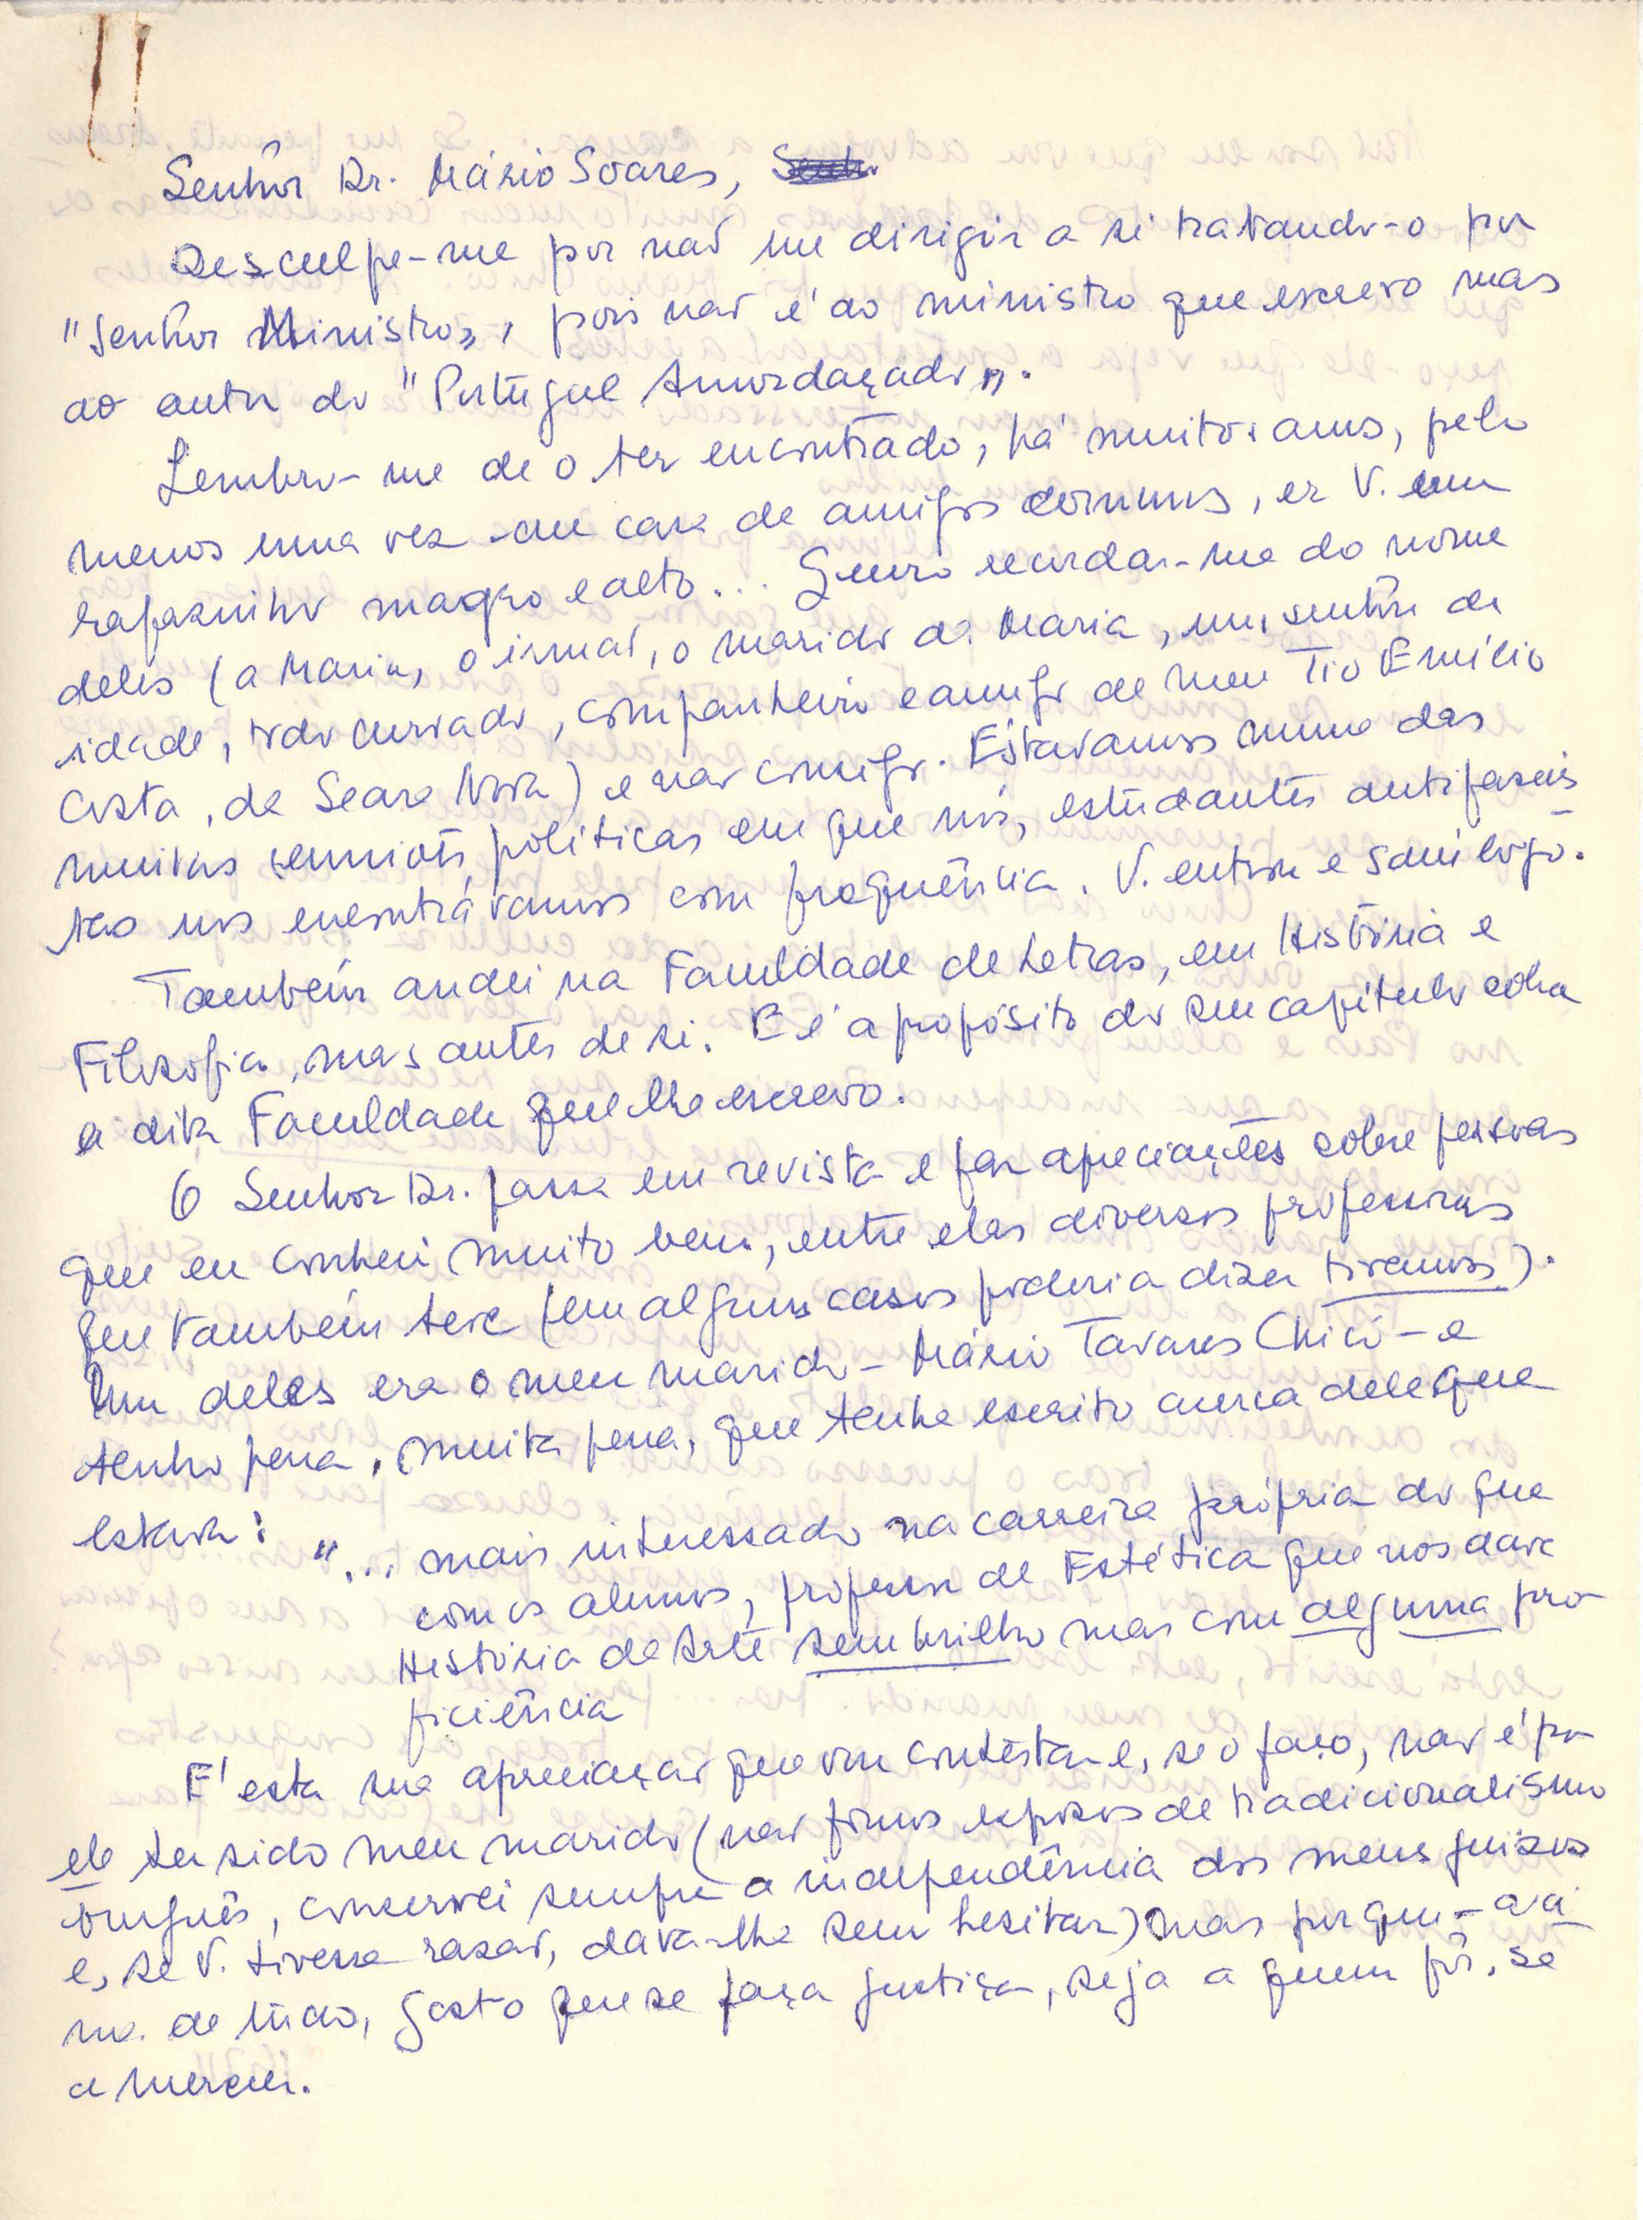 Senhor Dr. Mário Soares,
Desculpe-me por não me dirigir a si tratando-o por
"Senhor Ministro", pois não é ao ministro que escrevo mas
ao autor do "Portugal Amordaçado".
Lembro-me de o ter encontrado, há muitos anos, pelo
menos uma vez em casa de amigos comuns, er V. um
rapazinho magro e alto... Quero recordar-me do nome
deles (a Maria, o irmão, o marido da Maria, um senhor de
idade, todo curvado, companheiro e amigo de meu Tio Emílio
Costa, da Seara Nova) e não consigo. Estavamos numa das
muitas reuniões políticas em que nós, estudantes antifascis
tas nos encontrávamos com frequência. V. entrou e saiu logo.
Também andei na Faculdade de Letras, em História e
Filosofia, mas antes de si. E é a propósito do seu capítulo sobre
a dita Faculdade que lhe escrevo.
O Senhor Dr. passa em revista e faz apreciações sobre pessoas
que eu conheci muito bem, entre elas diversos professores
que também tive (em alguns casos poderia dizer tiranos).
Um deles era o meu marido - Mário Tavares Chicó - e
tenho pena, muita pena, que tenha escrito acerca dele que
estava:
"... mais interessado na carreira própria do que
com os alunos, professor de Estética que nos dava
História da Arte sem brilho mas com alguma pro
ficiência
É esta sua apreciação que vou contestar e, se o faço, não é por
ele ter sido meu marido (não fomos esposos de tradicionalismo
burguês, conservei sempre a independência dos meus juizos
e, se V. tivesse razão, dava-lha sem hesitar) mas porque, aci
ma de tudo, gosto que se faça justiça, seja a quem fôr, se
a merecer.